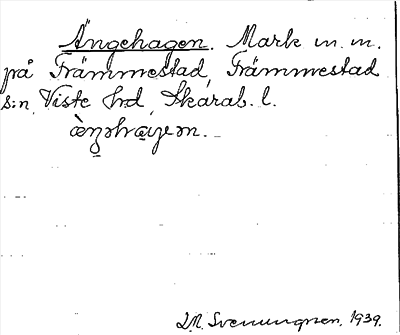 Ängehagen. Mark m. m.
på Främmestad, Främmestad
s:n, Viste hd, Skarab. l.
1939.